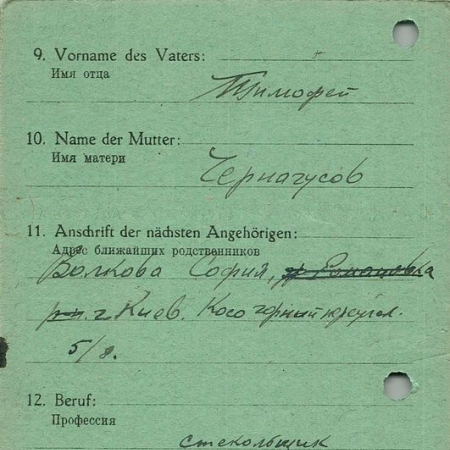 9. Vorname des Vaters:
Имя отца
Тимофей
10. Name der Mutter:
Имя матери
Чернагусов
11. Anschrift der nächsten Angehörigen:
Адрес ближайших родственников
Волкова София,
г Киев. Косогорный
5/8.
12. Beruf:
Профессия
стекольщик